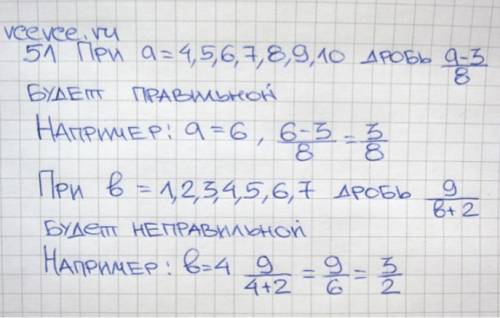 vcevce.ru
51 При a = 4,5,6,7,8,9,10 дробь (a-3)/8
будет правильной
Например: a = 6, (6-3)/8 = 3/8
При в = 1,2,3,4,5,6,7 дробь 9/(в+2)
будет неправильной
Например: в=4 9/(4+2) = 9/6 = 3/2